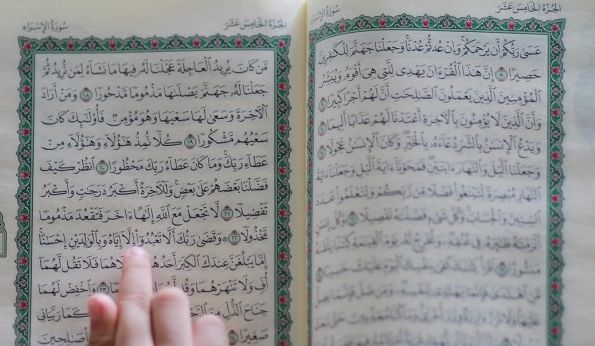 الجُزْءُ الخَامِسَ عَشَرَ
سُورَةُ الإِسْرَاء
عَسَىٰ رَبُّكُمْ أَن يَرْحَمَكُمْ وَإِنْ عُدتُّمْ عُدْنَا وَجَعَلْنَا جَهَنَّمَ لِلْكَٰفِرِينَ
حَصِيرًا ٨ إِنَّ هَٰذَا ٱلْقُرْءَانَ يَهْدِى لِلَّتِى هِىَ أَقْوَمُ وَيُبَشِّرُ
ٱلْمُؤْمِنِينَ ٱلَّذِينَ يَعْمَلُونَ ٱلصَّٰلِحَٰتِ أَنَّ لَهُمْ أَجْرًا كَبِيرًا ٩
وَأَنَّ ٱلَّذِينَ لَا يُؤْمِنُونَ بِٱلْءَاخِرَةِ أَعْتَدْنَا لَهُمْ عَذَابًا أَلِيمًا ١٠
وَيَدْعُ ٱلْإِنسَٰنُ بِٱلشَّرِّ دُعَآءَهُۥ بِٱلْخَيْرِ وَكَانَ ٱلْإِنسَٰنُ عَجُولًا ١١
وَجَعَلْنَا ٱلَّيْلَ وَٱلنَّهَارَ ءَايَتَيْنِ فَمَحَوْنَآ ءَايَةَ ٱلَّيْلِ وَجَعَلْنَآ ءَايَةَ
ٱلنَّهَارِ مُبْصِرَةً لِّتَبْتَغُوا۟ فَضْلًا مِّن رَّبِّكُمْ وَلِتَعْلَمُوا۟ عَدَدَ
ٱلسِّنِينَ وَٱلْحِسَابَ وَكُلَّ شَىْءٍ فَصَّلْنَٰهُ تَفْصِيلًا ١٢ وَكُلَّ إِنسَٰنٍ
أَلْزَمْنَٰهُ طَٰٓئِرَهُۥ فِى عُنُقِهِۦ وَنُخْرِجُ لَهُۥ يَوْمَ ٱلْقِيَٰمَةِ كِتَٰبًا يَلْقَىٰهُ
مَنشُورًا ١٣ ٱقْرَأْ كِتَٰبَكَ كَفَىٰ بِنَفْسِكَ ٱلْيَوْمَ عَلَيْكَ حَسِيبًا ١٤
مَّنِ ٱهْتَدَىٰ فَإِنَّمَا يَهْتَدِى لِنَفْسِهِۦ
الجُزْءُ الخَامِسَ عَشَرَ
سُورَةُ الإِسْرَاء
مَّن كَانَ يُرِيدُ ٱلْعَاجِلَةَ عَجَّلْنَا لَهُۥ فِيهَا مَا نَشَآءُ لِمَن نُّرِيدُ ثُمَّ
جَعَلْنَا لَهُۥ جَهَنَّمَ يَصْلَىٰهَا مَذْمُومًا مَّدْحُورًا ١٨ وَمَنْ أَرَادَ
ٱلْءَاخِرَةَ وَسَعَىٰ لَهَا سَعْيَهَا وَهُوَ مُؤْمِنٌ فَأُو۟لَٰٓئِكَ كَانَ
سَعْيُهُم مَّشْكُورًا ١٩ كُلًّا نُّمِدُّ هَٰٓؤُلَآءِ وَهَٰٓؤُلَآءِ مِنْ
عَطَآءِ رَبِّكَ وَمَا كَانَ عَطَآءُ رَبِّكَ مَحْظُورًا ٢٠ ٱنظُرْ كَيْفَ
فَضَّلْنَا بَعْضَهُمْ عَلَىٰ بَعْضٍ وَلَلْءَاخِرَةُ أَكْبَرُ دَرَجَٰتٍ وَأَكْبَرُ
تَفْضِيلًا ٢١ لَّا تَجْعَلْ مَعَ ٱللَّهِ إِلَٰهًا ءَاخَرَ فَتَقْعُدَ مَذْمُومًا
مَّخْذُولًا ٢٢ وَقَضَىٰ رَبُّكَ أَلَّا تَعْبُدُوٓا۟ إِلَّآ إِيَّاهُ وَبِٱلْوَٰلِدَيْنِ إِحْسَٰنًا
إِمَّا يَبْلُغَنَّ عِندَكَ ٱلْكِبَرَ أَحَدُهُمَآ فَلَا تَقُل لَّهُمَآ
أُفٍّ وَلَا تَنْهَرْهُمَا وَقُل ٢٣ وَٱخْفِضْ لَهُمَا
جَنَاحَ ٱلذُّلِّ مِنَ كَمَا رَبَّيَانِى
صَغِيرًا ٢٤ صَٰلِحِينَ